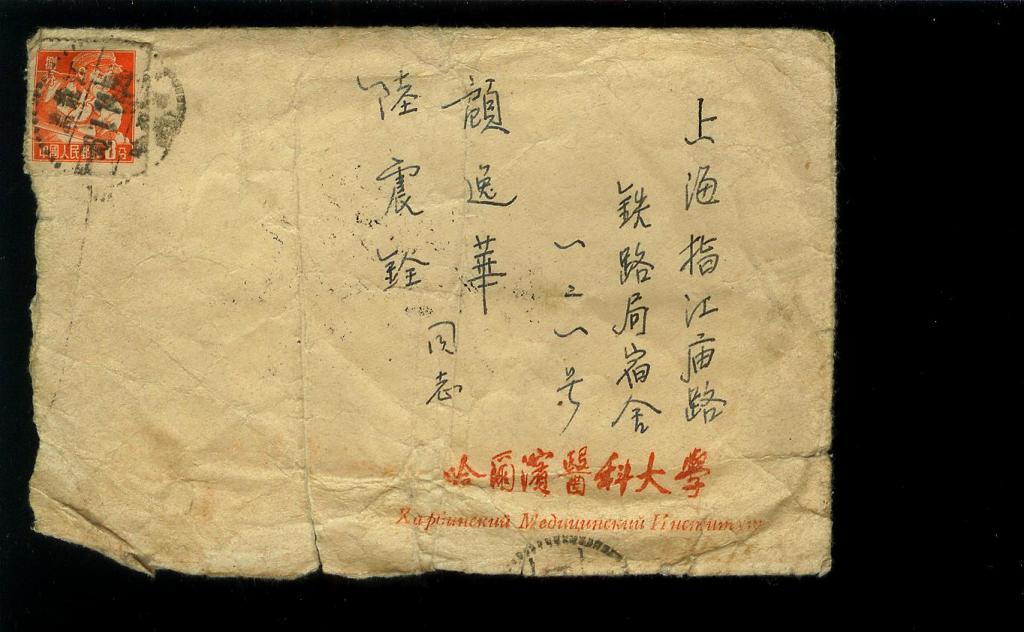 上海指江庙路
铁路局宿舍
一二一号
顧逸華
陸震銓
同志
哈爾濱醫科大學
Харбинский Медицинский Институт
中國人民郵政 8分